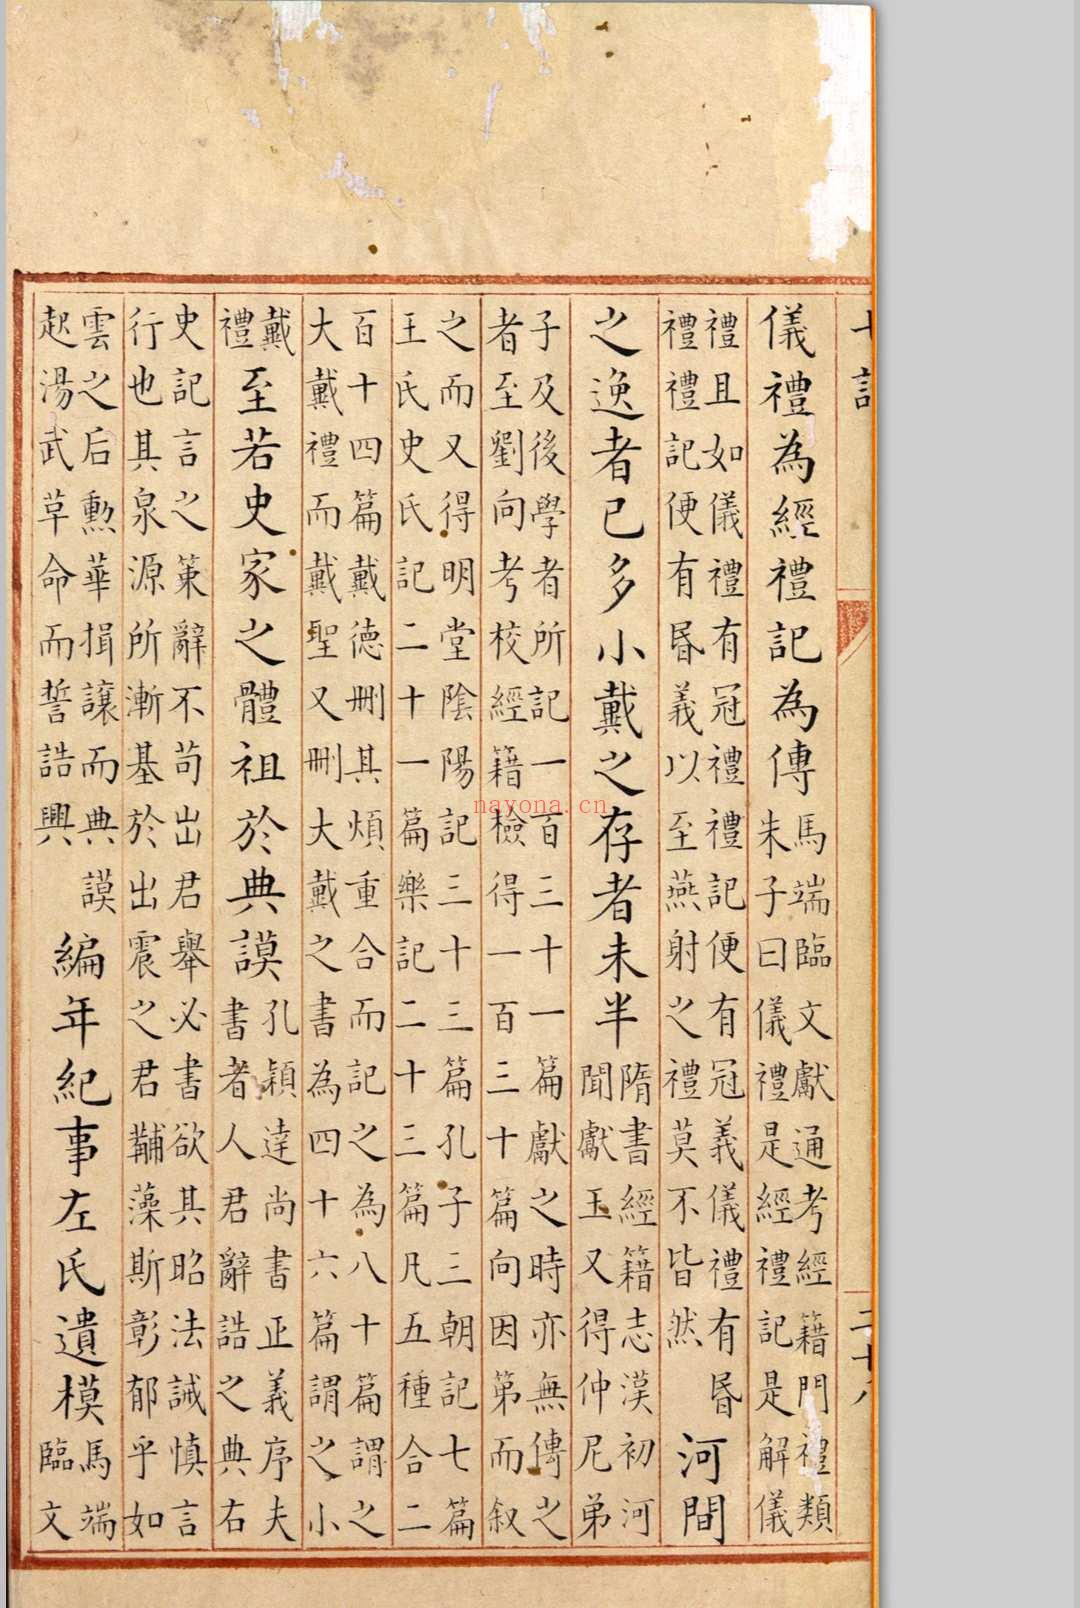 儀禮為經禮記為傳
馬端臨文獻通考經籍門禮類
朱子曰儀禮是經禮記是解儀
禮且如儀禮有冠禮禮記便有冠義儀禮有昏
禮禮記便有昏義以至燕射之禮莫不皆然
河間
之逸者已多小戴之存者未半
隋書經籍志漢初河
聞獻玉又得仲尼弟
子及後學者所記一百三十一篇獻之時亦無傳之
者至劉向考校經籍檢得一百三十篇向因第而叙
之而又得明堂陰陽記三十三篇孔子三朝記七篇
王氏史氏記二十一篇樂記二十三篇凡五種合二
百十四篇戴德刪其煩重合而記之為八十篇謂之
大戴禮而戴聖又刪大戴之書為四十六篇謂之小
戴
禮
至若史家之體祖於典謨
孔穎達尚書正義序夫
書者人君辭誥之典右
史記言之策辭不苟出君舉必書欲其昭法誡慎言
行也其泉源所漸基於出震之君黼藻斯彰郁乎如
雲之后勳華揖讓而典謨
起湯武革命而誓誥興
編年紀事左氏遺模
馬端
臨文
nayona.cn